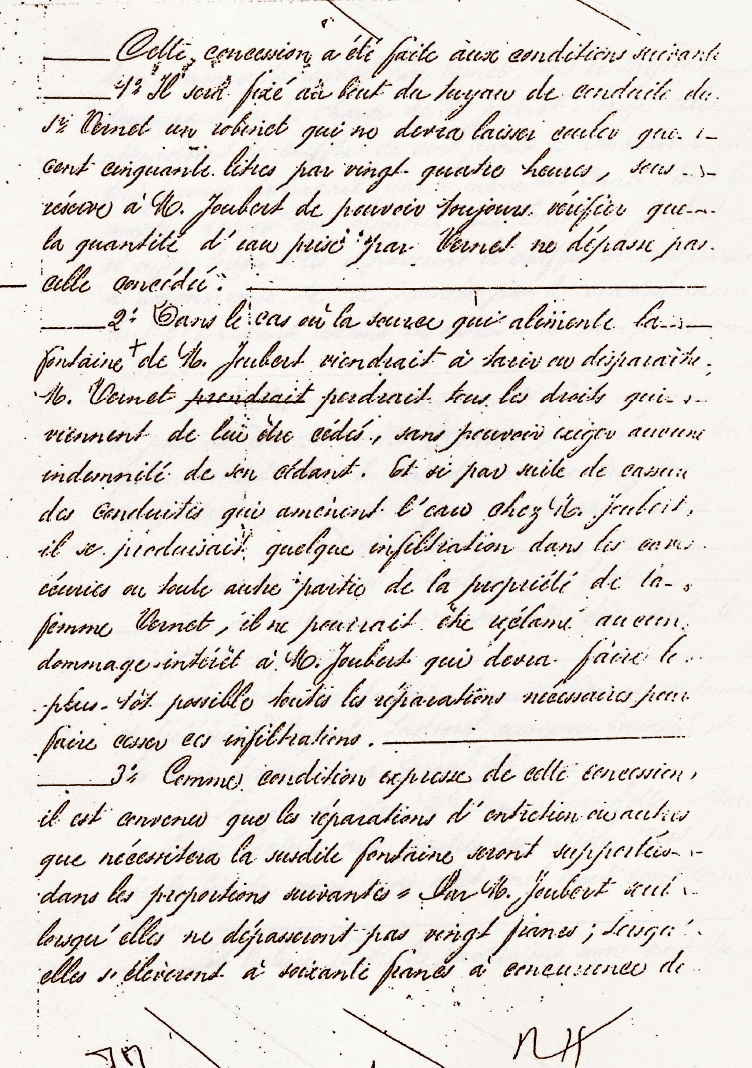 Cette concession a été faite aux conditions suivante
1º Il sera fixé au bout du tuyau de conduite du
Sr Vernet un robinet qui ne devra laisser couler que
cent cinquante litres par vingt quatre heures, sous
réserve à M. Joubert de pouvoir toujours vérifier que
la quantité d'eau prise par Vernet ne dépasse pas
celle concédée.
2º Dans le cas où la source qui alimente la
fontaine + de M. Joubert viendrait à tarir ou disparaître,
M. Vernet prendrait perdrait tous les droits qui
viennent de lui être cédés, sans pouvoir exiger aucune
indemnité de son cédant. Et si par suite de cassure
des conduites qui amènent l'eau chez M. Joubert,
il se produisait quelque infiltration dans les caves
écuries ou toute autre partie de la propriété de la
femme Vernet, il ne pourrait être réclamé aucun
dommage-intérêt à M. Joubert qui devra faire le
plus-tôt possible toutes les réparations nécessaires pour
faire cesser ces infiltrations.
3º Comme condition expresse de cette concession,
il est convenu que les réparations d'entretien ou autres
que nécessitera la susdite fontaine seront supportées
dans les proportions suivantes = Par M. Joubert seul
lorsqu'elles ne dépasseront pas vingt francs ; lorsqu'
elles s'élèveront à soixante francs à concurrence de